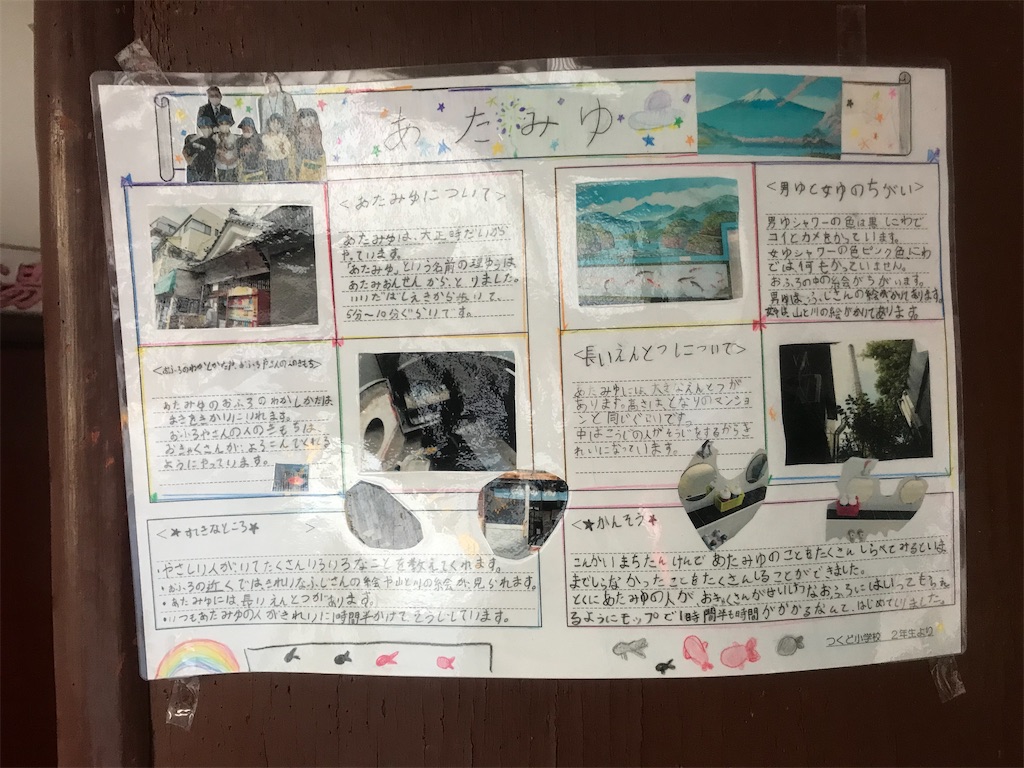 あたみゆ
<あたみゆについて>
あたみゆは、大正時だいから
やっています。
「あたみゆ」という名前の理ゆうは
あたみおんせんからとりました。
いいだばしえきから歩いて、
5分～10分ぐらいです。
<男ゆと女ゆのちがい>
男ゆシャワーの色は黒 にわで
コイとカメをかっています。
女ゆシャワーの色ピンク色にわ
では何もかっていません。
おふろの中の絵がちがいます。
男ゆは、ふじさんの絵がかけあります。
山と川の絵がかけてあります
<おふろのわかしかたや、おふろやさんの人のきもち>
あたみゆのおふろのわかしかたは
まきをかかりにいれます。
おふろやさんの人の
おきゃくさんがよろこんでくれる
ようにやっています。
<長いえんとつについて>
あたみゆには、大きなえんとつが
あります。高さはとなりのマンショ
ンと同じぐらいです。
中はこうじの人がそうじをするからき
れいになっています。
<★すてきなところ★ >
・やさしい人がいてたくさんいろいろなことを教えてくれます。
・おふろの近くではきれいなふじさんの絵や山と川の絵が見られます。
・あたみゆには長いえんとつがあります。
・いつもあたみゆの人がきれいに1時間半かけてそうじしています。
<★かんそう★
こんかいまちたんけんであたみゆのことをたくさんしらべてみるといま
までしらなかったことをたくさんしることができました。
とくにあたみゆの人がおきゃくさんがせいけつなおふろにはいってもらえ
るようにモップで1時間半も時間がかかるなんて、はじめてしりました。
つくど小学校 2年生より